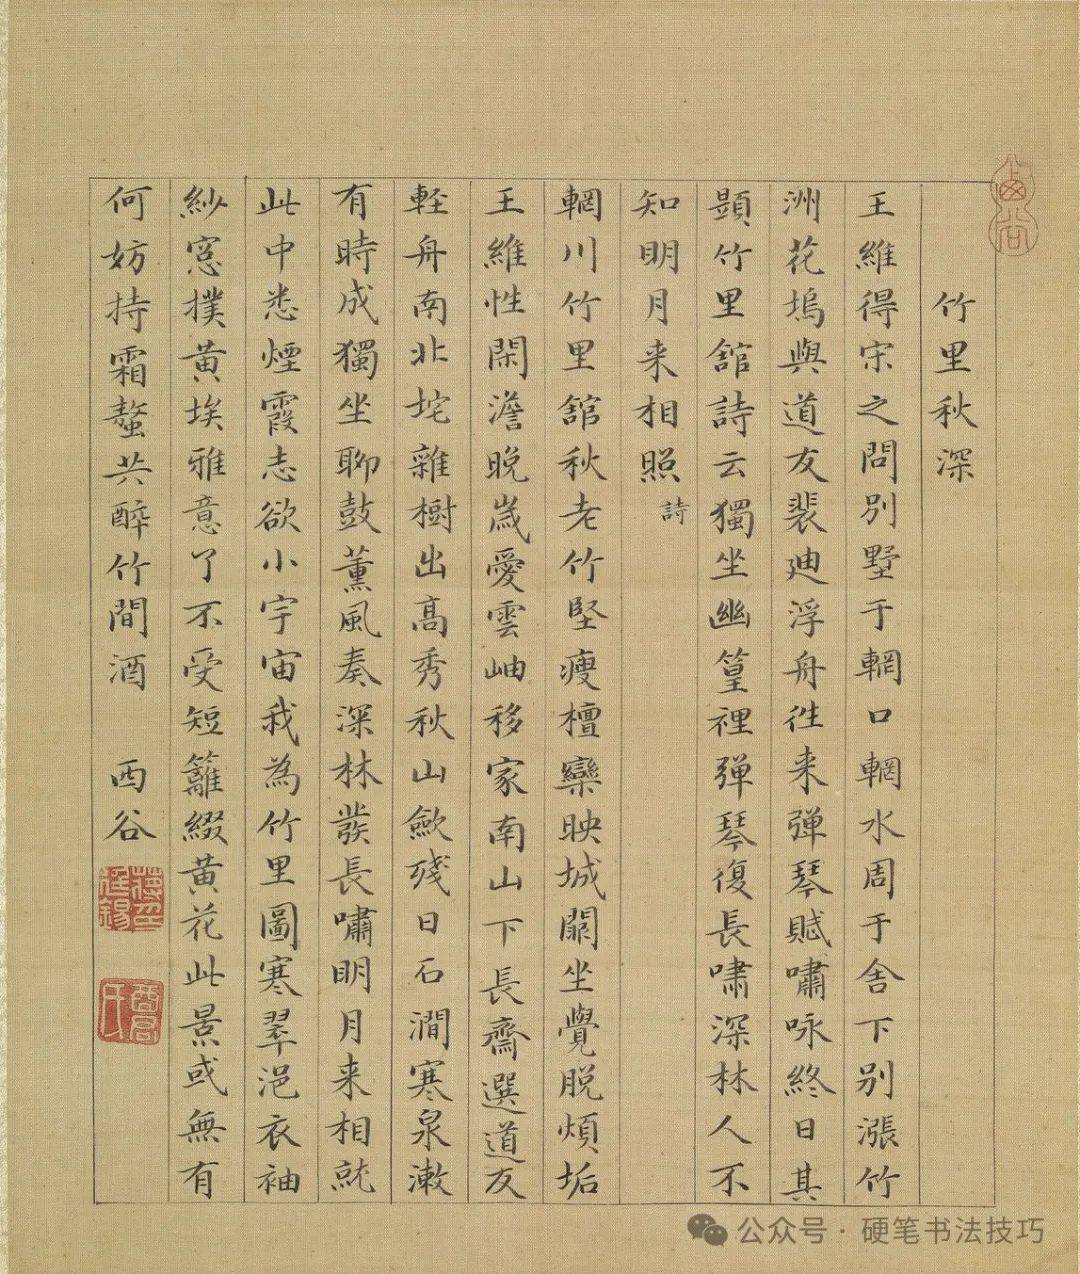 竹里秋深
王維得宋之問別墅于輞口輞水周于舍下別漲竹
洲花塢與道友裴迪浮舟徃来弹琴賦嘯咏終日其
題竹里館詩云獨坐幽篁裡弹琴復長嘯深林人不
知明月来相照
詩
輞川竹里館秋老竹堅瘦檀欒映城闕坐覺脱煩垢
王維性閑澹晚歲愛雲岫移家南山下長齋選道友
輕舟南北垞雜樹出高秀秋山歛殘日石澗寒泉漱
有時成獨坐聊鼓薰風奏深林發長嘯明月来相就
此中悉煙霞志欲小宇宙我為竹里圖寒翠浥衣袖
紗窓撲黄埃雅意了不受短籬綴黄花此景或無有
何妨持霜螯共醉竹間酒 西谷
蔣廷錫印
酉君氏
公众号·硬笔书法技巧